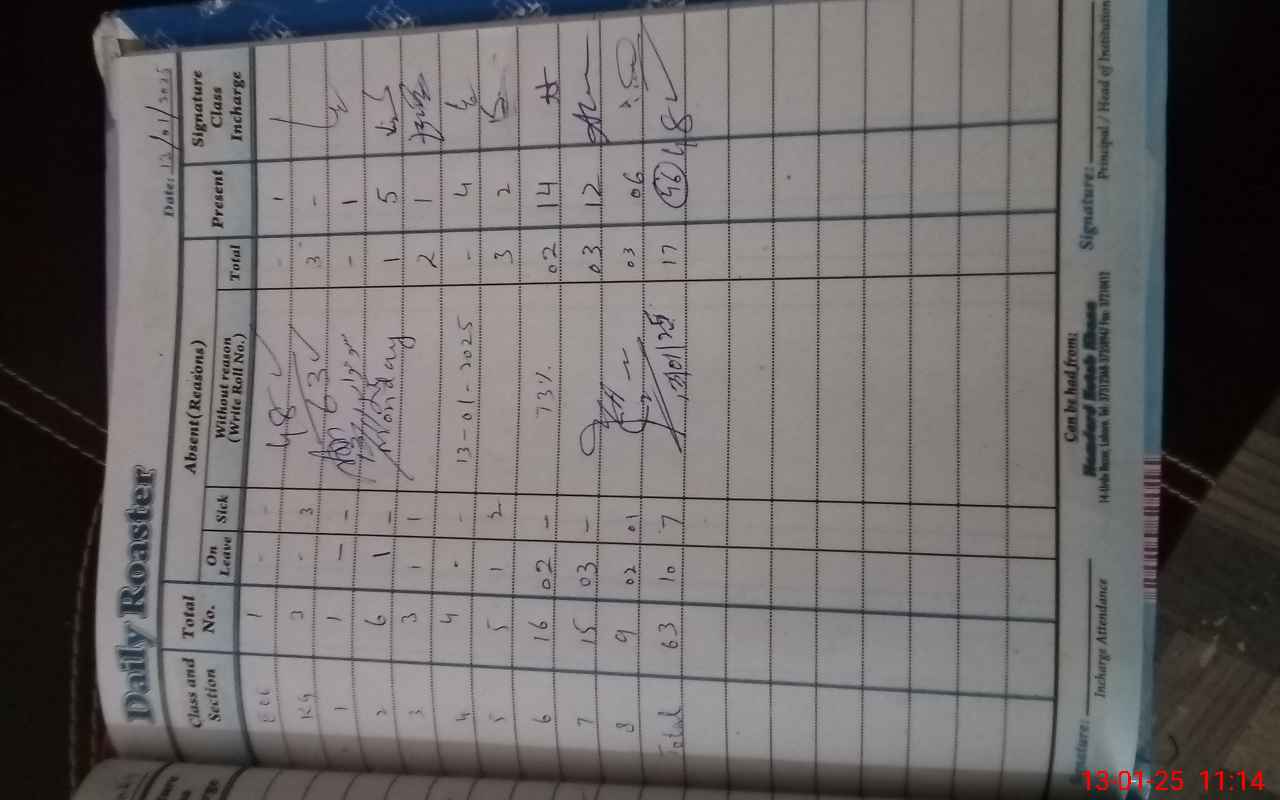 Daily Roaster
Date: 12/01/2025
Class and Section Total No. Absent (Reasons) Present Signature Class Incharge
On Leave Sick Without reason (Write Roll No.) Total
ECE 1 - - 48 - 1
KG 3 - 3 63 3 -
1 1 - - - 1
2 6 1 - 1 5
3 3 1 1 Monday 2 1
4 4 - - - 4
5 5 1 2 13-01-2025 3 2
6 16 02 - 02 14
7 15 03 - 73% 03 12
8 9 02 01 03 06
Total 63 10 7 13/01/25 17 46 48
Can be had from:
Signature: Signature:
Incharge Attendance Principal / Head of Institution
13-01-25 11:14